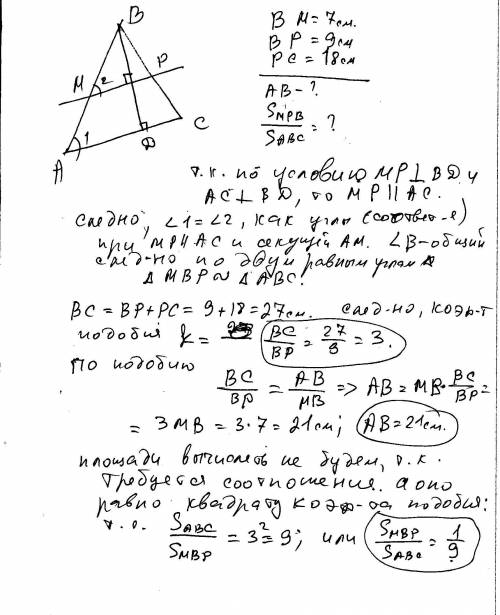 B
M 2 P
1 C
A D
BM = 7см.
BP = 9см
PC = 18см
AB - ?
S_MPB / S_ABC = ?
т.к. по условию MP ⊥ BD и
AC ⊥ BD, то MP ∥ AC.
следно, ∠1 = ∠2, как углы (соответ-е)
при MP ∥ AC и секущей AM. ∠B - общий
след-но по двум равным углам
△ MBP ~ △ ABC.
BC = BP + PC = 9 + 18 = 27см. след-но, коэф-т
подобия k = BC / BP = 27 / 9 = 3.
По подобию
BC / BP = AB / MB => AB = MB · BC / BP =
= 3 MB = 3 · 7 = 21см; AB = 21см.
площади вычислять не будем, т.к.
требуется соотношение. а оно
равно квадрату коэф-та подобия:
т.е. S_ABC / S_MBP = 3² = 9; или S_MBP / S_ABC = 1 / 9